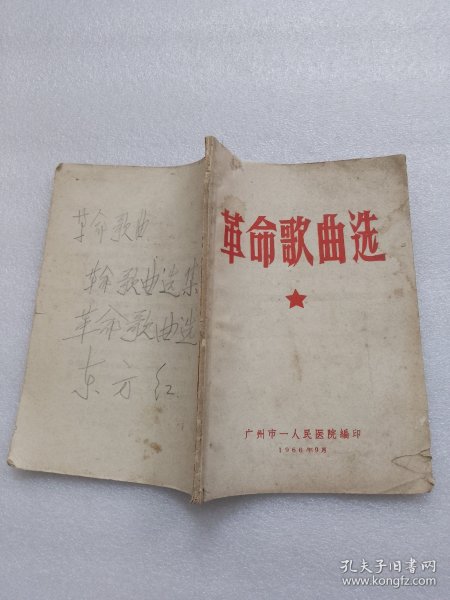 革命歌曲
革命歌曲选集
革命歌曲选
东方红
革命歌曲选
广州市一人民医院编印
1966年9月
孔夫子旧书网
www.kongfz.com